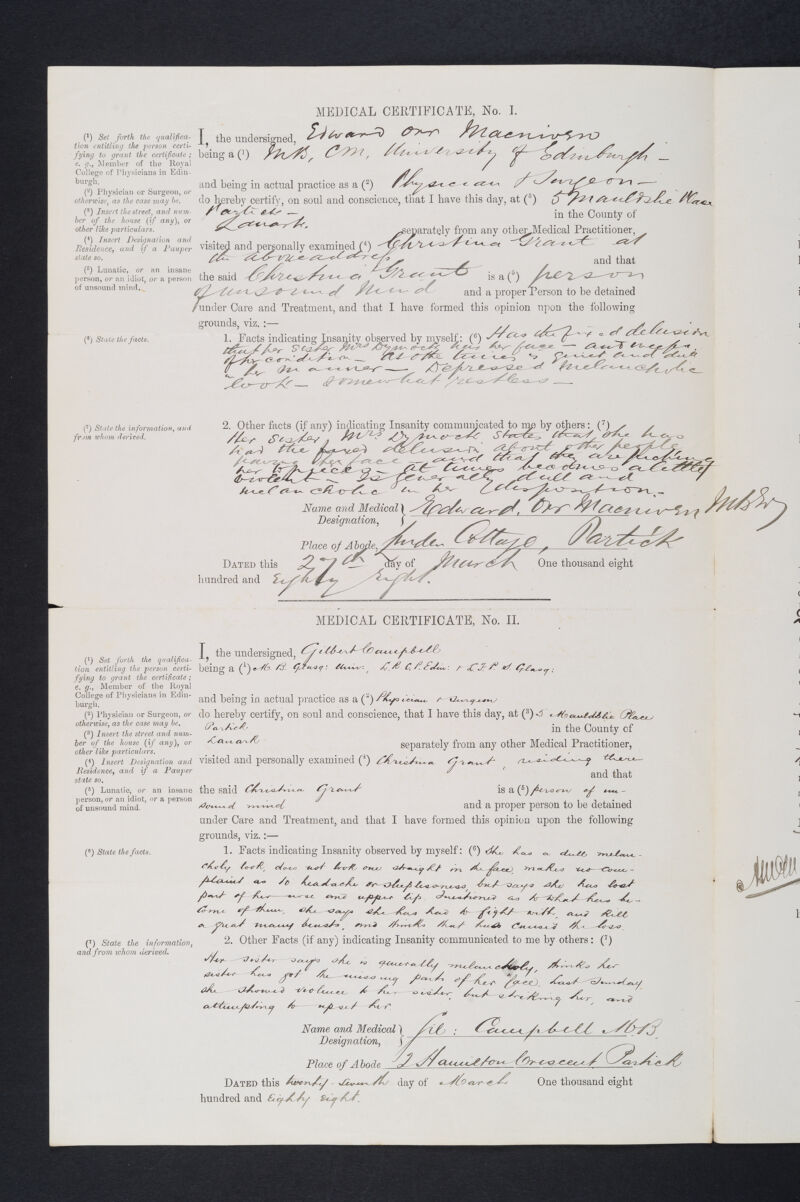 MEDICAL CERTIFICATE, No. I.
(1) Set forth the qualifica-
tion entitling the person certi-
fying to grant the certificate;
e. g., Member of the Royal
College of Physicians in Edin-
burgh.
(2) Physician or Surgeon, or
otherwise, as the case may be.
(3) Insert the street, and num-
ber of the house (if any), or
other like particulars.
(4) Insert Designation and
Residence, and if a Pauper
state so.
(5) Lunatic, or an insane
person, or an idiot, or a person
of unsound mind.
I, the undersigned, Edward Orr Macniven
being a (1) M.B., C.M., University of Edinburgh –
and being in actual practice as a (2) Physician & Surgeon –
do hereby certify, on soul and conscience, that I have this day, at (3) 5 Mauldslie Place
Partick – in the County of
Lanark. separately from any other Medical Practitioner,
visited and personally examined (4) Christina Grant at
the above address and that
the said Christina Grant is a (5) person
of unsound mind and a proper Person to be detained
under Care and Treatment, and that I have formed this opinion upon the following
grounds, viz.:—
(6) State the facts.
1. Facts indicating Insanity observed by myself: (6) Has the fixed delusion
that her sister Mrs Dymock has her face – and weeps
of her condition – at other times is quiet and dull
in her manner – Depressed melancholic
look – somewhat restless –
(7) State the information, and
from whom derived.
2. Other facts (if any) indicating Insanity communicated to me by others: (7)
Her sister, Mrs Dymock states that she has
had the fixed delusion about other people
having her face and that they are picking
her to pieces – At times becomes a little
violent – Is generally dull and
melancholic in her disposition. –
Name and Medical Designation, Edward Orr Macniven M.B.
Place of Abode, Linden Cottage, Partick
DATED this 27th day of March One thousand eight
hundred and Eighty Eight.
MEDICAL CERTIFICATE, No. II.
(1) Set forth the qualifica-
tion entitling the person certi-
fying to grant the certificate;
e. g., Member of the Royal
College of Physicians in Edin-
burgh.
(2) Physician or Surgeon, or
otherwise, as the case may be.
(3) Insert the street and num-
ber of the house (if any), or
other like particulars.
(4) Insert Designation and
Residence, and if a Pauper
state so.
(5) Lunatic, or an insane
person, or an idiot, or a person
of unsound mind.
I, the undersigned, Gilbert Campbell
being a (1) M. B. Glasg: Univ:, L.R.C.P. Edin: & L.F.P.S. Glasg:
and being in actual practice as a (2) Physician & Surgeon
do hereby certify, on soul and conscience, that I have this day, at (3) 5 Mauldslie Place
Partick in the County of
Lanark separately from any other Medical Practitioner,
visited and personally examined (4) Christina Grant, residing there
and that
the said Christina Grant is a (5) person of un-
sound mind and a proper person to be detained
under Care and Treatment, and that I have formed this opinion upon the following
grounds, viz.:—
(6) State the facts.
1. Facts indicating Insanity observed by myself: (6) She has a dull melan-
choly look, does not look one straight in the face, makes no com-
plaint as to headache or sleeplessness, but says she has lost
part of her nose and upper lip. Questioned as to what has be-
come of them, she says she has had to fight with, and kill
a great many beasts, and thinks that has caused the loss.
(7) State the information,
and from whom derived.
2. Other Facts (if any) indicating Insanity communicated to me by others: (7)
Her sister says she is generally melancholy, thinks her
sister has got the missing parts of her face. Last Sunday
she showed violence to her sister, but striking her, and
attempting to upset her
Name and Medical Designation, Gil: Campbell M.B.
Place of Abode 2 Hamilton Crescent, Partick
DATED this twenty-seventh day of March One thousand eight
hundred and Eighty eight.